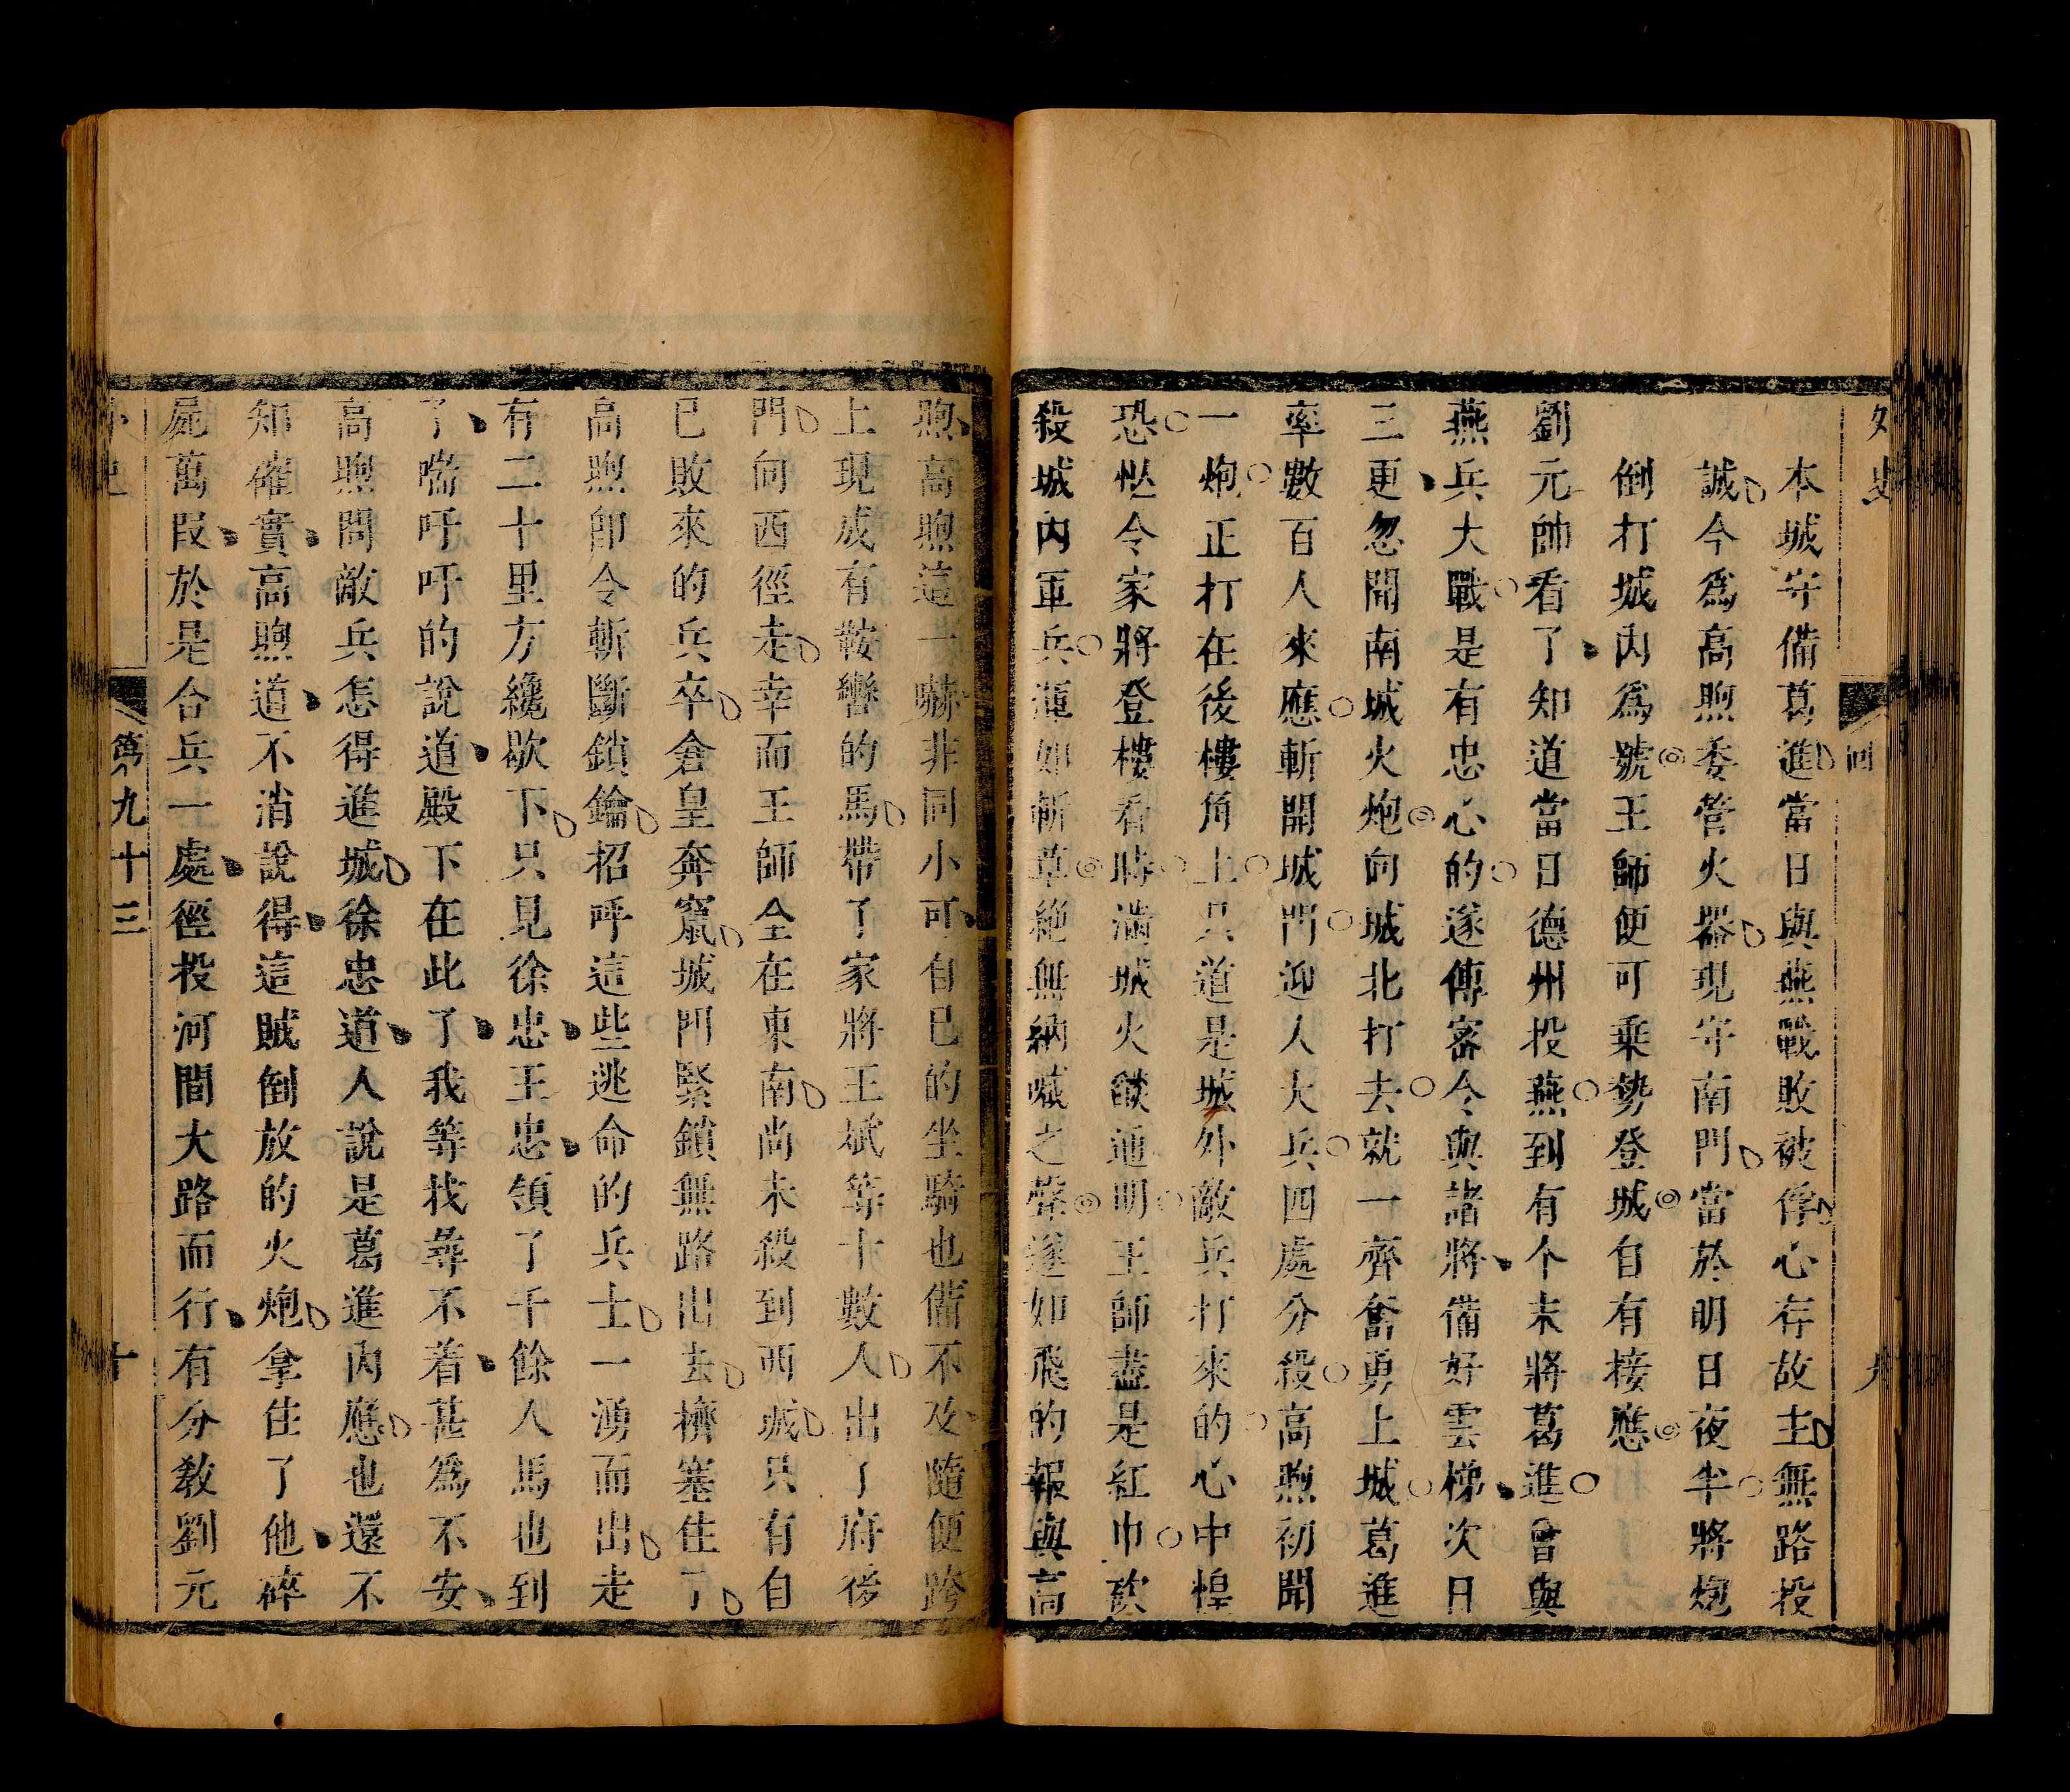 外史
回
九
本城守備葛進當日與燕戰敗被俘心存故主無路投
誠今爲高煦委管火器現守南門當於明日夜半將炮
倒打城内爲號王師便可乗勢登城自有接應
劉元帥看了知道當日德州投燕到有个末將葛進曾與
燕兵大戰是有忠心的遂傳密令與諸將備好雲梯次日
三更忽聞南城火炮向城北打去就一齊奮勇上城葛進
率數百人來應斬開城門迎人大兵四處分殺高煦初聞
一炮正打在後樓角上只道是城外敵兵打來的心中惶
恐怂令家將登樓看時滿城火燄通明王師盡是紅巾欲
殺城内軍兵運如斬草絶無納喊之聲遂如飛的報與高
煦高煦這一嚇非同小可自已的坐騎也備不及隨便跨
上現成有鞍轡的馬帶了家將王斌等十數人出了府後
門向西徑走幸而王師全在東南尚未殺到西城只有自
已敗來的兵卒倉皇奔竄城門緊鎖無路出去擠塞住了
高煦卽令斬斷鎖鑰招呼這些逃命的兵士一湧而出走
有二十里方纔歇下只見徐忠王忠領了千餘人馬也到
了喘吁吁的說道殿下在此了我等找尋不着甚爲不安
高煦問敵兵怎得進城徐忠道人說是葛進内應也還不
知確實高煦道不消說得這賊倒放的火炮拿住了他碎
屍萬叚於是合兵一處徑投河間大路而行有分敎劉元
外史
第九十三
十